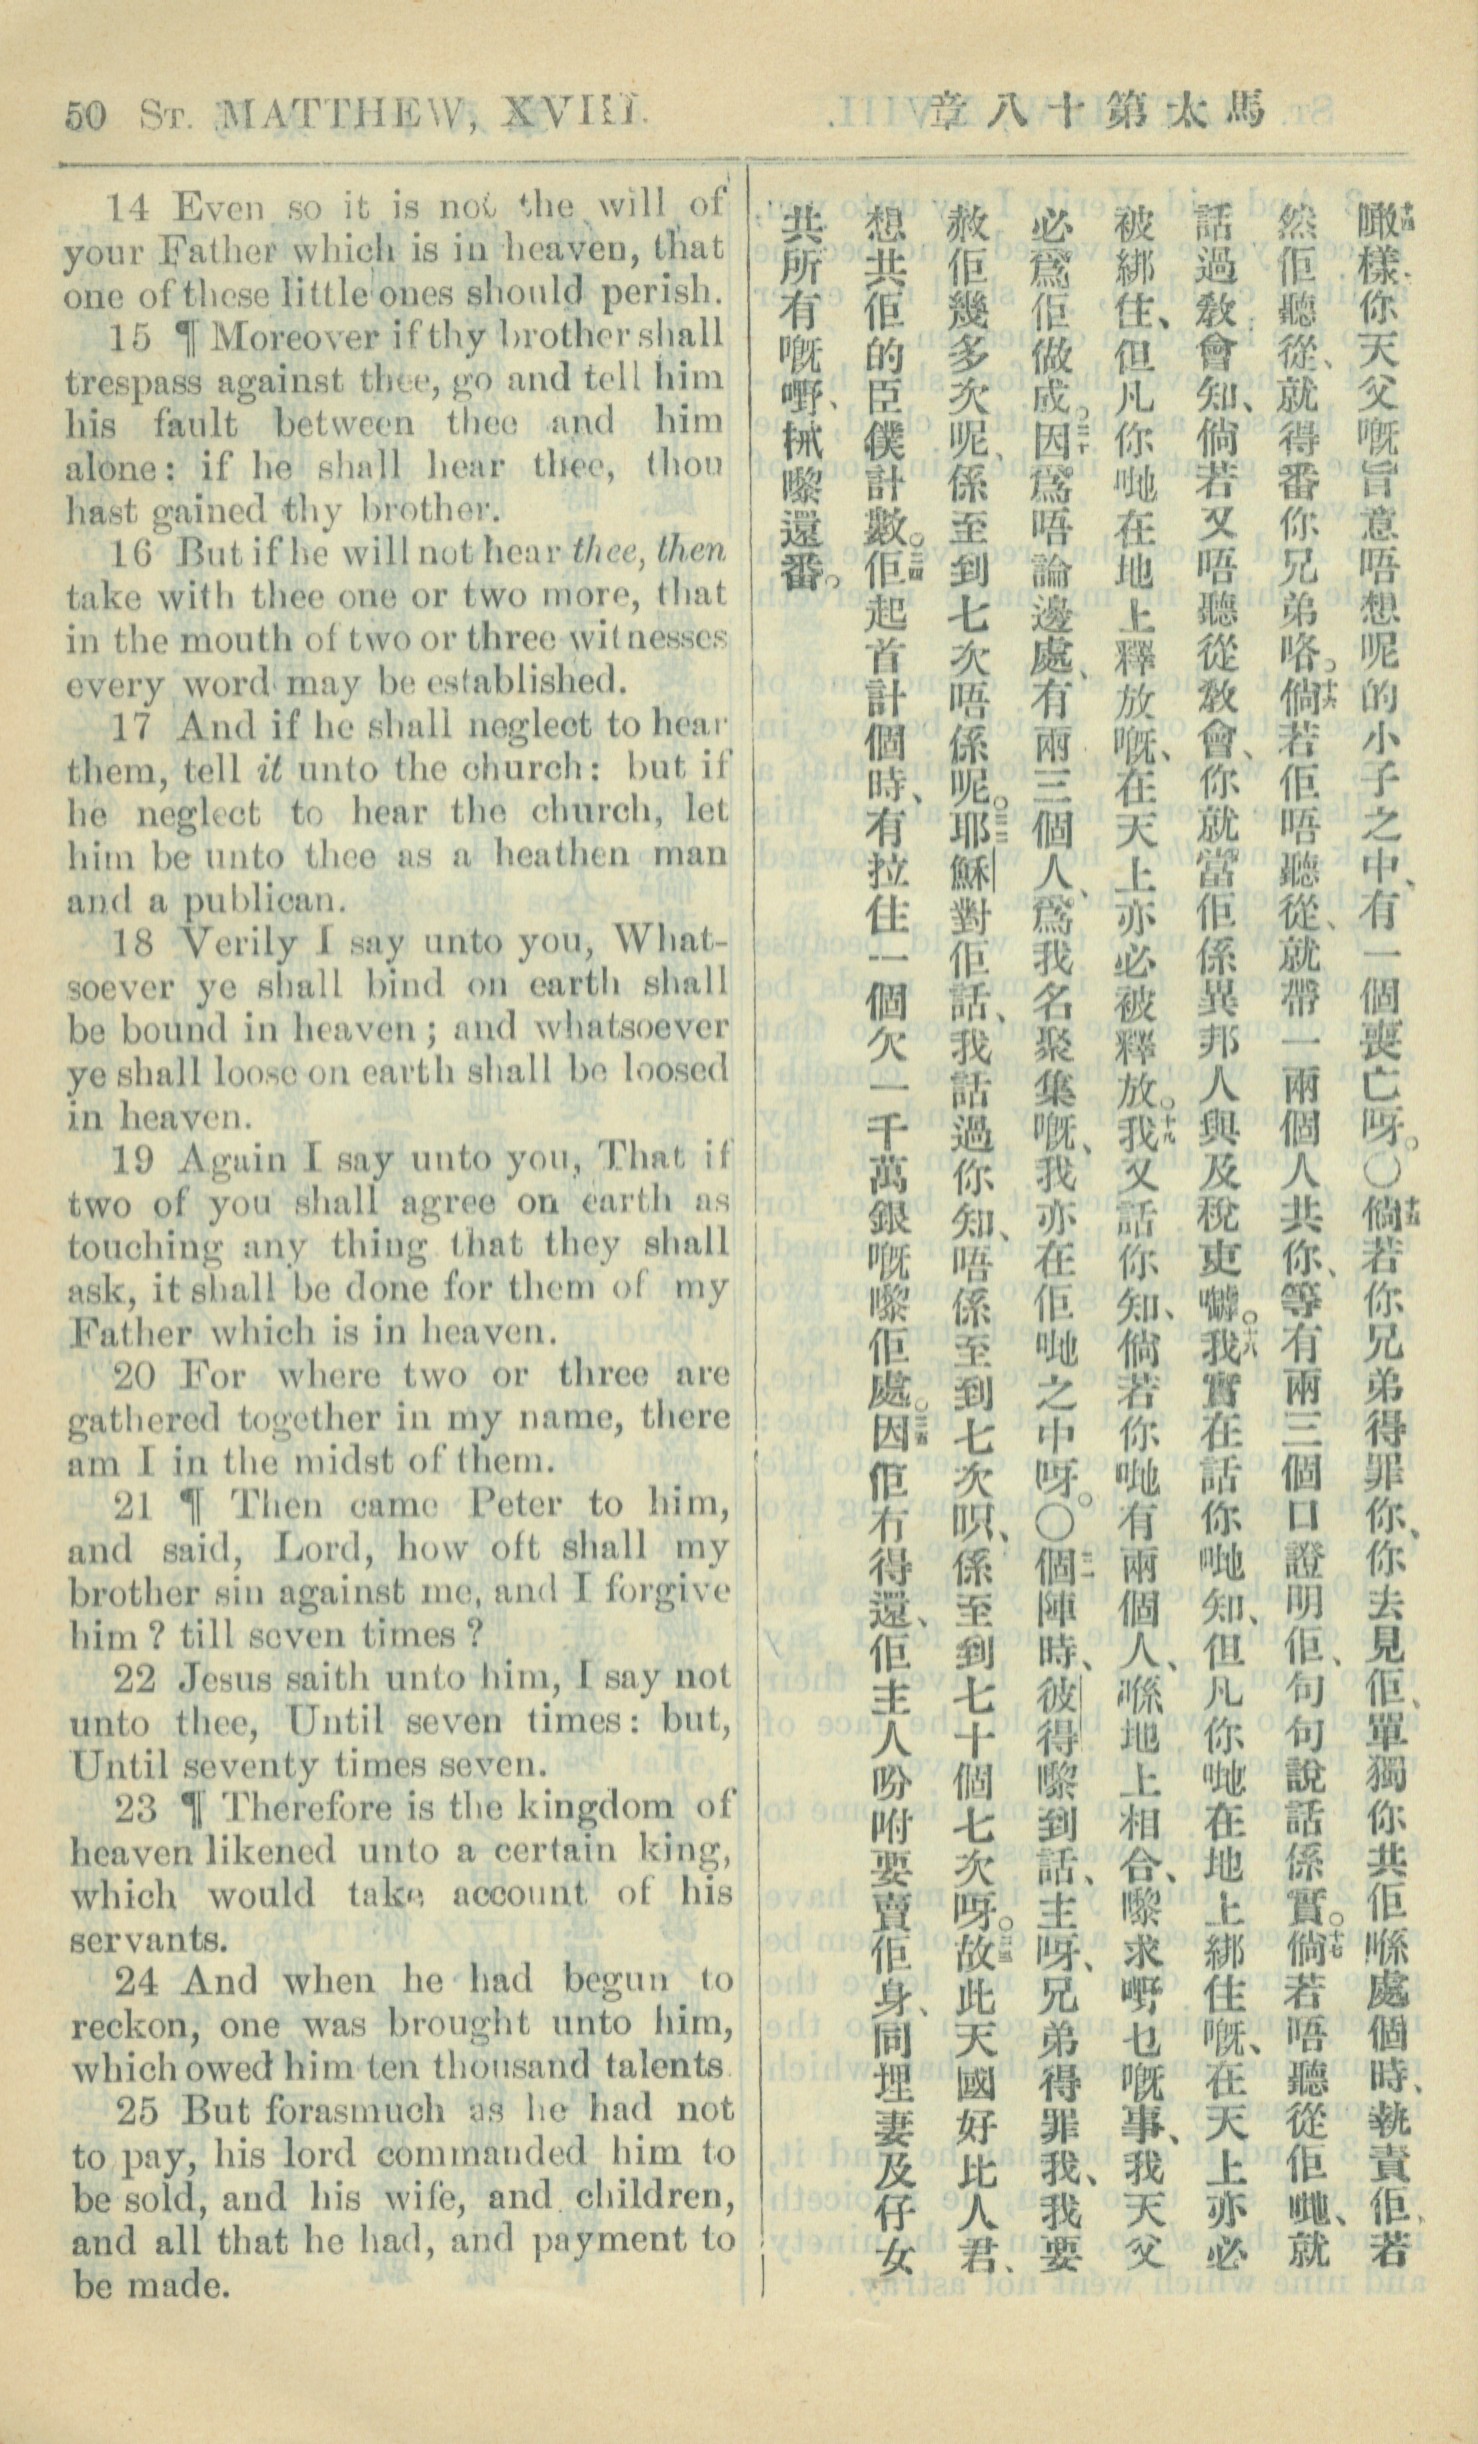 50 ST. MATTHEW, XVIII.
馬太第十八章
14 Even so it is not the will of
your Father which is in heaven, that
one of these little ones should perish.
15 ¶ Moreover if thy brother shall
trespass against thee, go and tell him
his fault between thee and him
alone: if he shall hear thee, thou
hast gained thy brother.
16 But if he will not hear thee, then
take with thee one or two more, that
in the mouth of two or three witnesses
every word may be established.
17 And if he shall neglect to hear
them, tell it unto the church: but if
he neglect to hear the church, let
him be unto thee as a heathen man
and a publican.
18 Verily I say unto you, What-
soever ye shall bind on earth shall
be bound in heaven; and whatsoever
ye shall loose on earth shall be loosed
in heaven.
19 Again I say unto you, That if
two of you shall agree on earth as
touching any thing that they shall
ask, it shall be done for them of my
Father which is in heaven.
20 For where two or three are
gathered together in my name, there
am I in the midst of them.
21 ¶ Then came Peter to him,
and said, Lord, how oft shall my
brother sin against me, and I forgive
him? till seven times?
22 Jesus saith unto him, I say not
unto thee, Until seven times: but,
Until seventy times seven.
23 ¶ Therefore is the kingdom of
heaven likened unto a certain king,
which would take account of his
servants.
24 And when he had begun to
reckon, one was brought unto him,
which owed him ten thousand talents.
25 But forasmuch as he had not
to pay, his lord commanded him to
be sold, and his wife, and children,
and all that he had, and payment to
be made.
十四噉樣、你天父嘅旨意唔想呢的小子之中、有一個喪亡呀。〇十五倘若你兄弟得罪你、你去見佢、單獨你共佢喺處個時、執責佢、若
然佢聽從、就得番你兄弟咯。十六倘若佢唔聽從、就帶一兩個人共你、等有兩三個口證明佢、句句說話係實。十七倘若唔聽從佢哋、就
話過教會知、倘若又唔聽從教會、你就當佢係異邦人與及稅吏囉。十八我實在話你哋知、但凡你哋在地上綁住嘅、在天上亦必
被綁住、但凡你哋在地上釋放嘅、在天上亦必被釋放。十九我又話你知、倘若你哋有兩個人、喺地上相合、嚟求嘢乜嘅事、我天父
必爲佢做成。二十因爲唔論邊處、有兩三個人、爲我名聚集嘅、我亦在佢哋之中呀。〇二一個陣時、彼得嚟到話、主呀、兄弟得罪我、我要
赦佢幾多次呢、係至到七次唔係呢。二二耶穌對佢話、我話過你知、唔係至到七次呮、係至到七十個七次呀。二三故此天國好比人君、
想共佢的臣僕計數。二四佢起首計個時、有拉住一個欠一千萬銀嘅嚟佢處。二五因佢冇得還、佢主人吩咐要賣佢身、同埋妻及仔女
共所有嘅嘢、𢬿嚟還番。